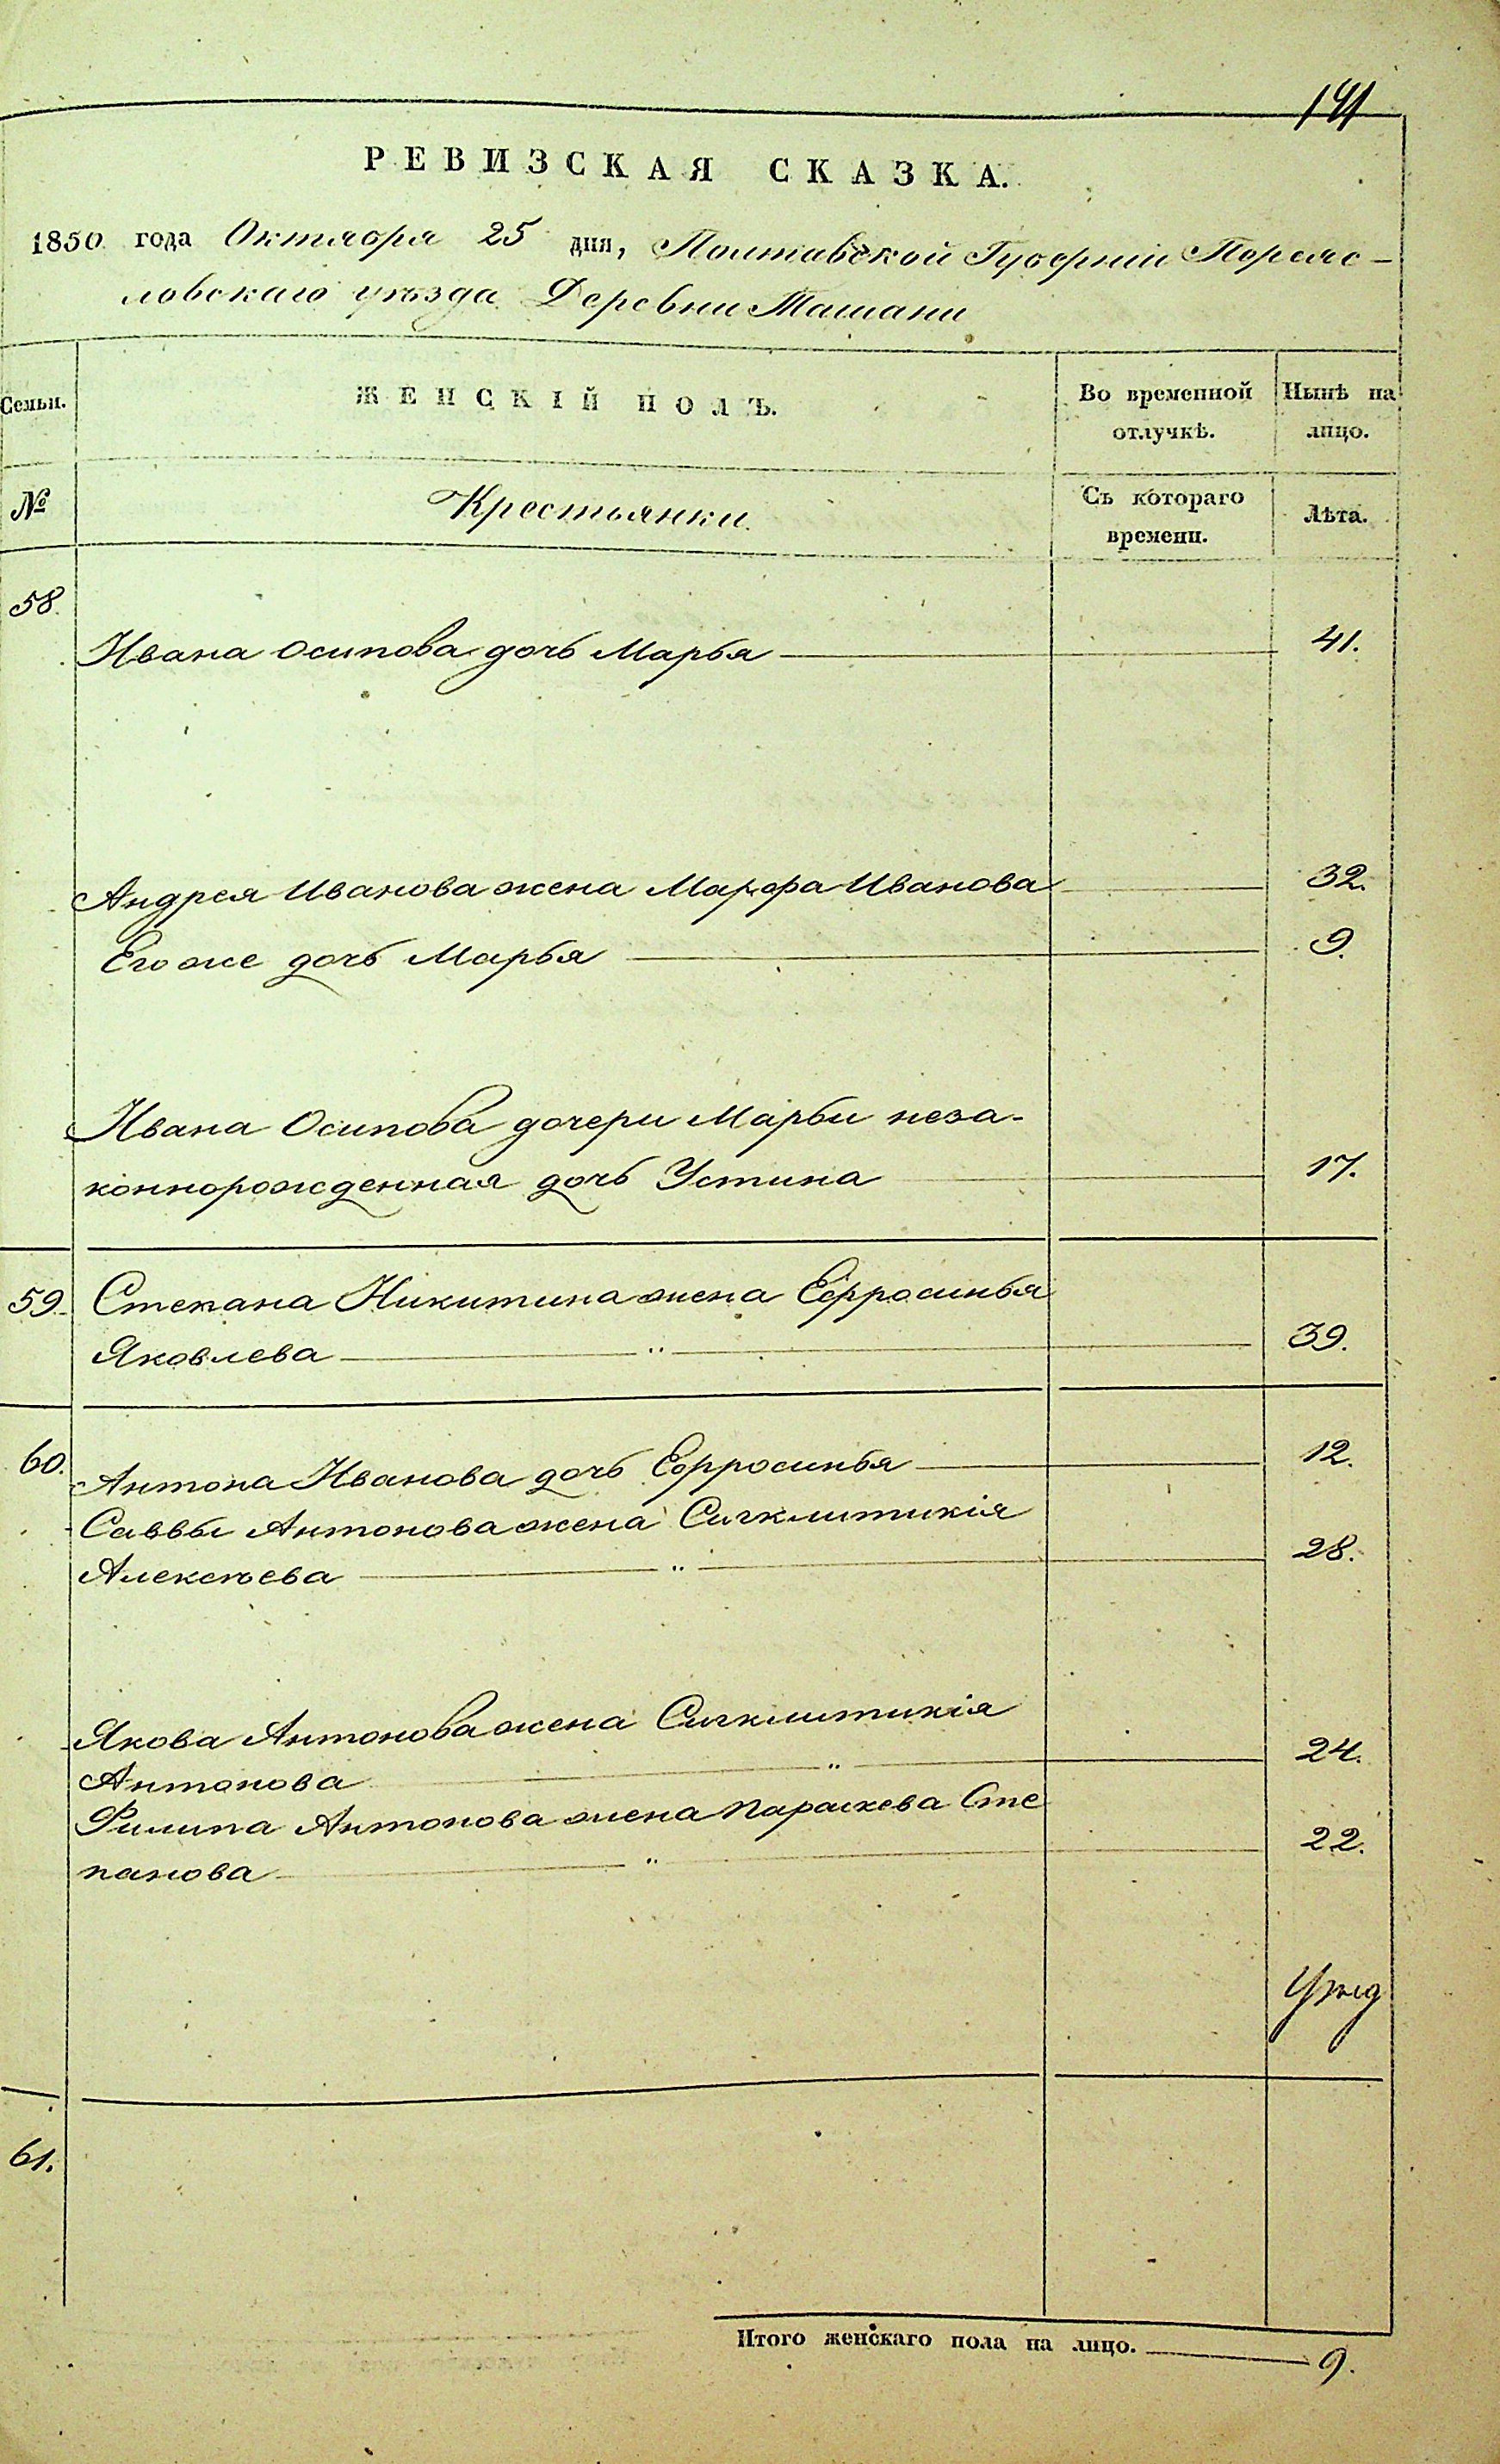 141
РЕВИЗСКАЯ СКАЗКА.
1850 года Октября 25 дня, Полтавской Губерніи Переяс-
ловскаго уѣзда Деревни Ташани
Семьи. ЖЕНСКІЙ ПОЛЪ. Во временной отлучкѣ. Нынѣ на лицо.
№ Крестьянки Съ котораго времени. Лѣта.
58.
Ивана Осипова дочь Марья 41.
Андрея Иванова жена Марфа Иванова 32.
Его же дочь Марья 9.
Ивана Осипова дочери Марьи неза-
коннорожденная дочь Устина 17.
59. Степана Никитина жена Ефросинья
Яковлева " 39.
60. Антона Иванова дочь Ефросинья 12.
Саввы Антонова жена Сигклитикія
Алексѣева " 28.
Якова Антонова жена Сигклитикія
Антонова " 24.
Филипа Антонова жена Параскева Сте
панова " 22.
61.
Итого женскаго пола на лицо. 9.